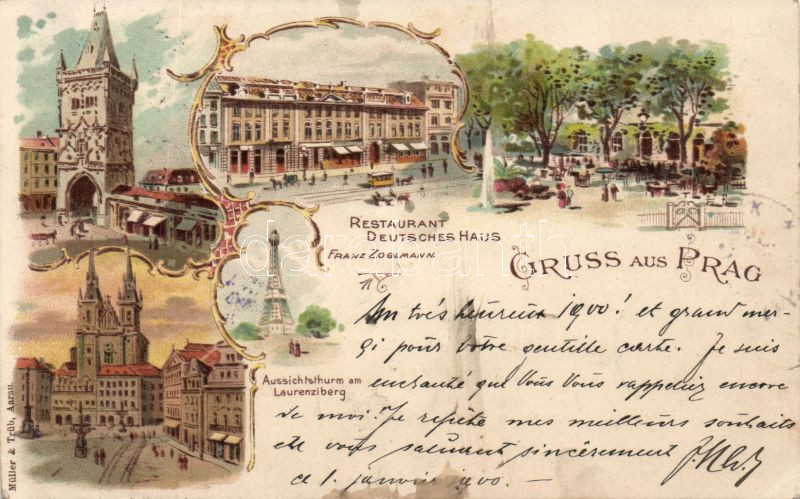 RESTAURANT
DEUTSCHES HAUS
FRANZ ZOGLMANN
GRUSS AUS PRAG
Aussichtsthurm am
Laurenziberg
Un très heureux 1900! et grand mer-
çi pour votre gentille carte. Je suis
enchanté que Vous Vous rappeliez encore
de moi. Je répète mes meilleurs souhaits
et vous saluant sincèrement
ce 1. janvier 1900.—
Müller & Trüb, Aarau.
darabanth